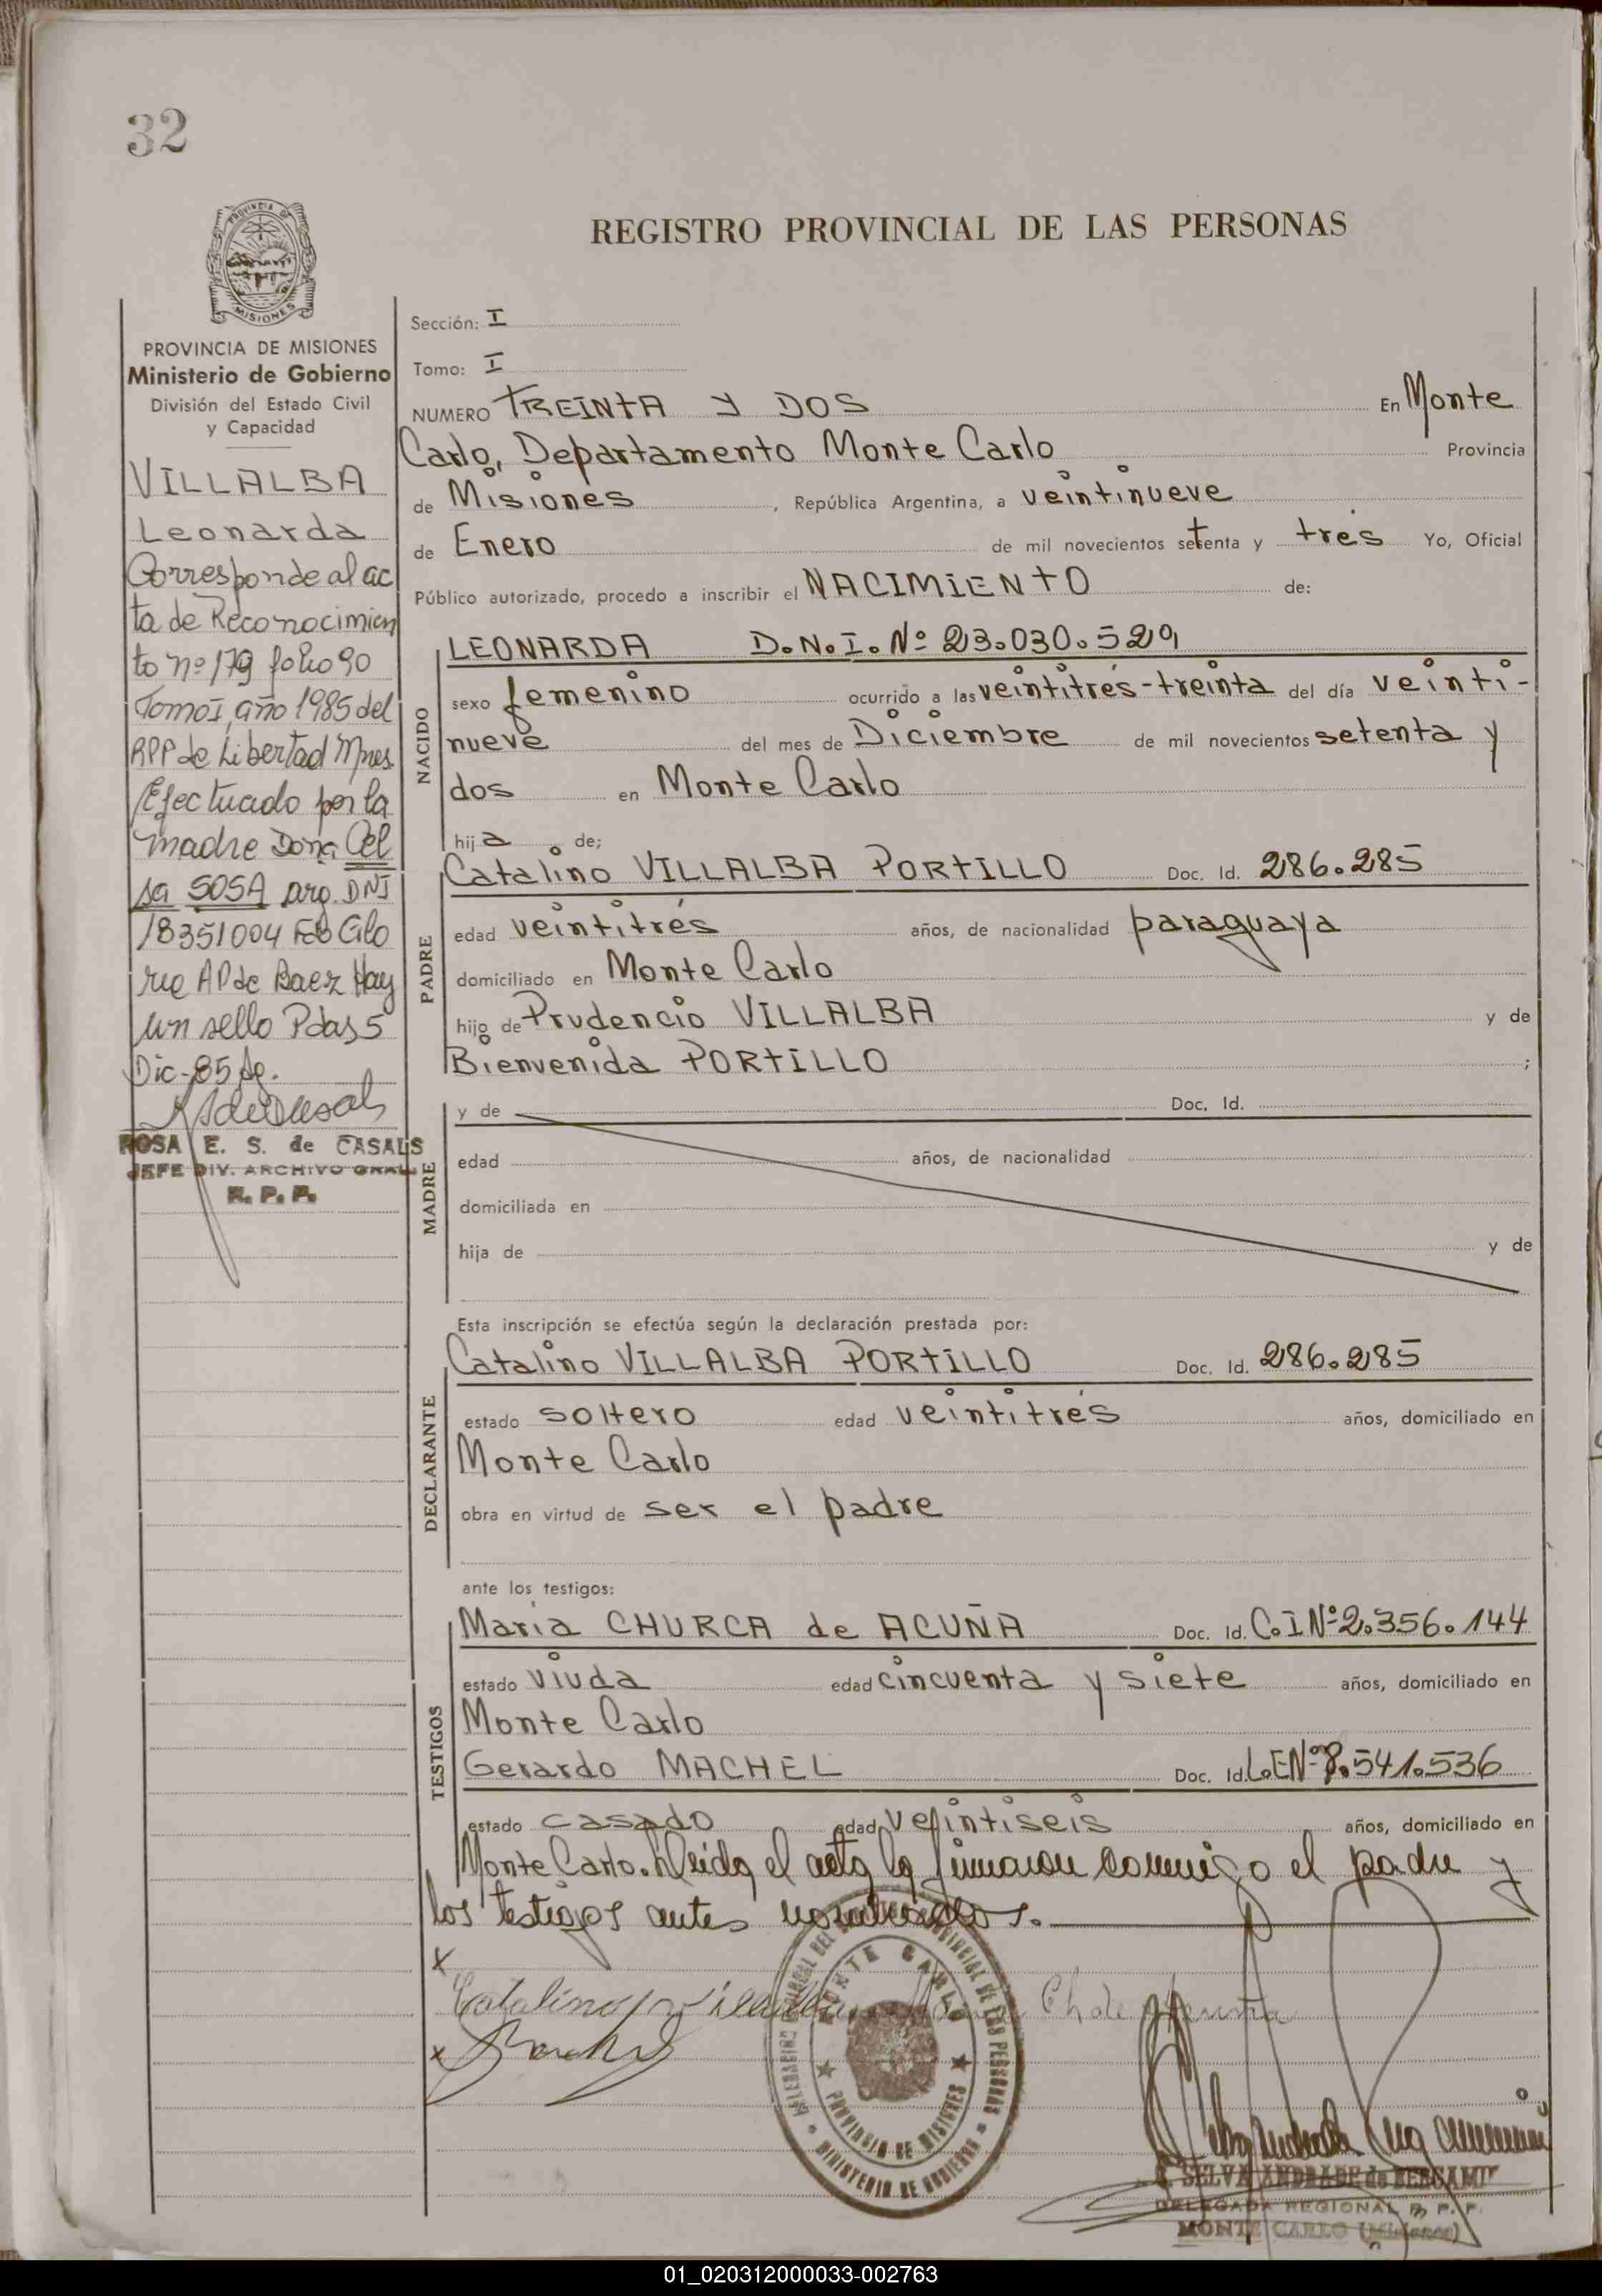 32
PROVINCIA DE
MISIONES
PROVINCIA DE MISIONES
Ministerio de Gobierno
División del Estado Civil
y Capacidad
VILLALBA
Leonarda
Corresponde al ac
ta de Reconocimien
to nº 179 folio 90
Tomo I, año 1985 del
RPP de Libertad Mnes
Efectuado por la
madre Doña Cel
sa SOSA arg. DNI
18351004 Fdo Glo
ria AP de Baez Hay
un sello Pdas 5
Dic-85
ROSA E. S. de CASALS
JEFE DIV. ARCHIVO GRAL
R. P. P.
REGISTRO PROVINCIAL DE LAS PERSONAS
Sección: I
Tomo: I
NUMERO TREINTA Y DOS En Monte
Carlo, Departamento Monte Carlo Provincia
de Misiones, República Argentina, a veintinueve
de Enero de mil novecientos setenta y tres Yo, Oficial
Público autorizado, procedo a inscribir el NACIMIENTO de:
NACIDO
LEONARDA D.N.I. Nº 23.030.529
sexo femenino ocurrido a las veintitrés-treinta del día veinti-
nueve del mes de Diciembre de mil novecientos setenta y
dos en Monte Carlo
hija de;
PADRE
Catalino VILLALBA PORTILLO Doc. Id. 286.285
edad veintitrés años, de nacionalidad paraguaya
domiciliado en Monte Carlo
hijo de Prudencio VILLALBA y de
Bienvenida PORTILLO ;
MADRE
y de Doc. Id.
edad años, de nacionalidad
domiciliada en
hija de y de
Esta inscripción se efectúa según la declaración prestada por:
DECLARANTE
Catalino VILLALBA PORTILLO Doc. Id. 286.285
estado soltero edad veintitrés años, domiciliado en
Monte Carlo
obra en virtud de ser el padre
ante los testigos:
TESTIGOS
Maria CHURCA de ACUÑA Doc. Id. C.I Nº 2.356.144
estado viuda edad cincuenta y siete años, domiciliado en
Monte Carlo
Gerardo MACHEL Doc. Id. L.E Nº 8.541.536
estado casado edad veintiseis años, domiciliado en
Monte Carlo. Leida el acta la firmaron conmigo el padre y
los testigos antes nombrados.
x
Catalino Villalba Ch de Acuña
x
MONTE CARLO
PROVINCIA DE MISIONES
MINISTERIO DE GOBIERNO
SELVA ANDRADE de BERGAMI
DELEGADA REGIONAL R. P. P.
MONTE CARLO (Misiones)
01_020312000033-002763